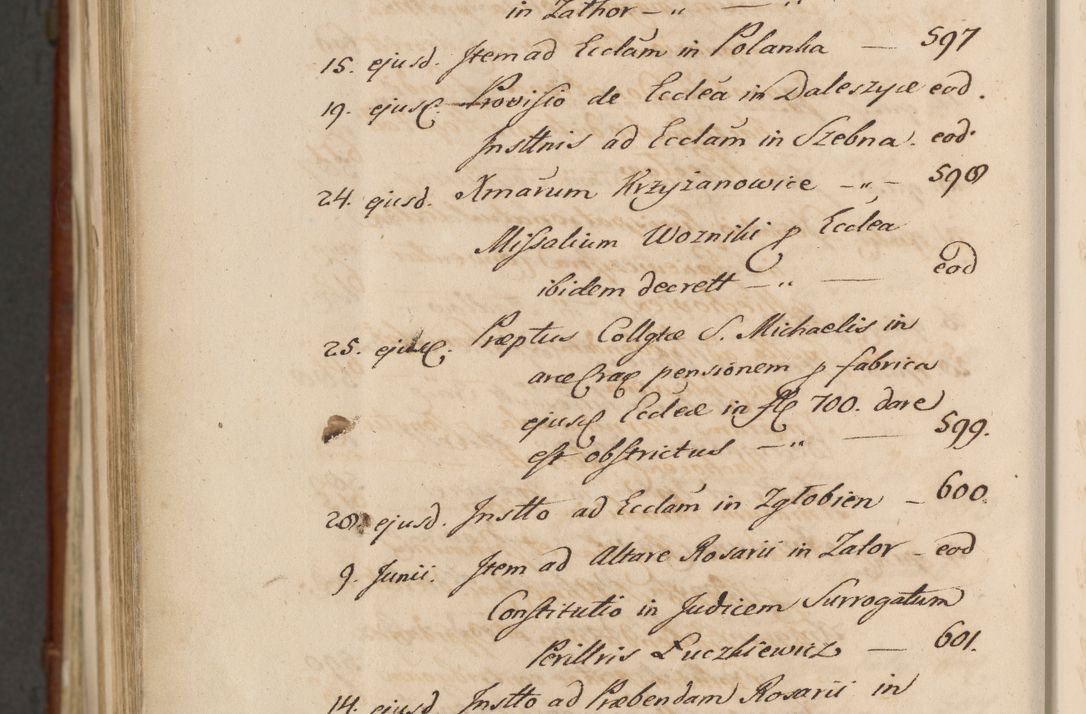 in Zathor — „ — „
15. ejusd. Item ad Ecclãm in Polanka — 597
19. ejusd. Provisio de Ecclẽa in Daleszyce eod.
Insttnis ad Ecclãm in Szebna. eod.
24. ejusd. Xmarum Krzyżanowice — „ — 598
Missalium Wozniki p Ecclea
ibidem decrett — „ — eod
25. ejusd. Præptus Collgtæ S. Michaelis in
arce Crac pensionem p fabrica
ejusd Ecclæ in fl 700. dare
est obstrictus — „ — 599.
28. ejusd. Instto ad Ecclãm in Zgłobien — 600.
9. Junii. Item ad Altare Rosarii in Zator — eod
Constitutio in Judicem Surrogatum
Perillris Łuczkiewicz — 601.
14. ejusd Instto ad Præbendam Rosarii in